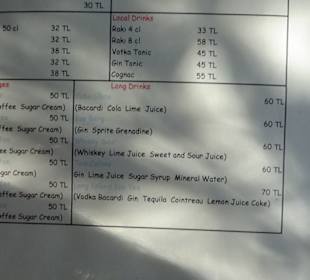 30 TL
Local Drinks
50 cl 32 TL Rakı 4 cl 33 TL
32 TL Rakı 8 cl 58 TL
38 TL Votka Tonic 45 TL
32 TL Gin Tonic 45 TL
38 TL Cognac 55 TL
Long Drinks
50 TL 60 TL
offee Sugar Cream) (Bacardi Cola Lime Juice)
50 TL 60 TL
offee Sugar Cream) (Gin Sprite Grenadine)
50 TL 60 TL
e Sugar Cream) (Whiskey Lime Juice Sweet and Sour Juice)
50 TL 60 TL
gar Cream) Gin Lime Juice Sugar Syrup Mineral Water)
50 TL 70 TL
offee Sugar Cream) (Vodka Bacardi Gin Tequila Cointreau Lemon Juice Coke)
50 TL
offee Sugar Cream)